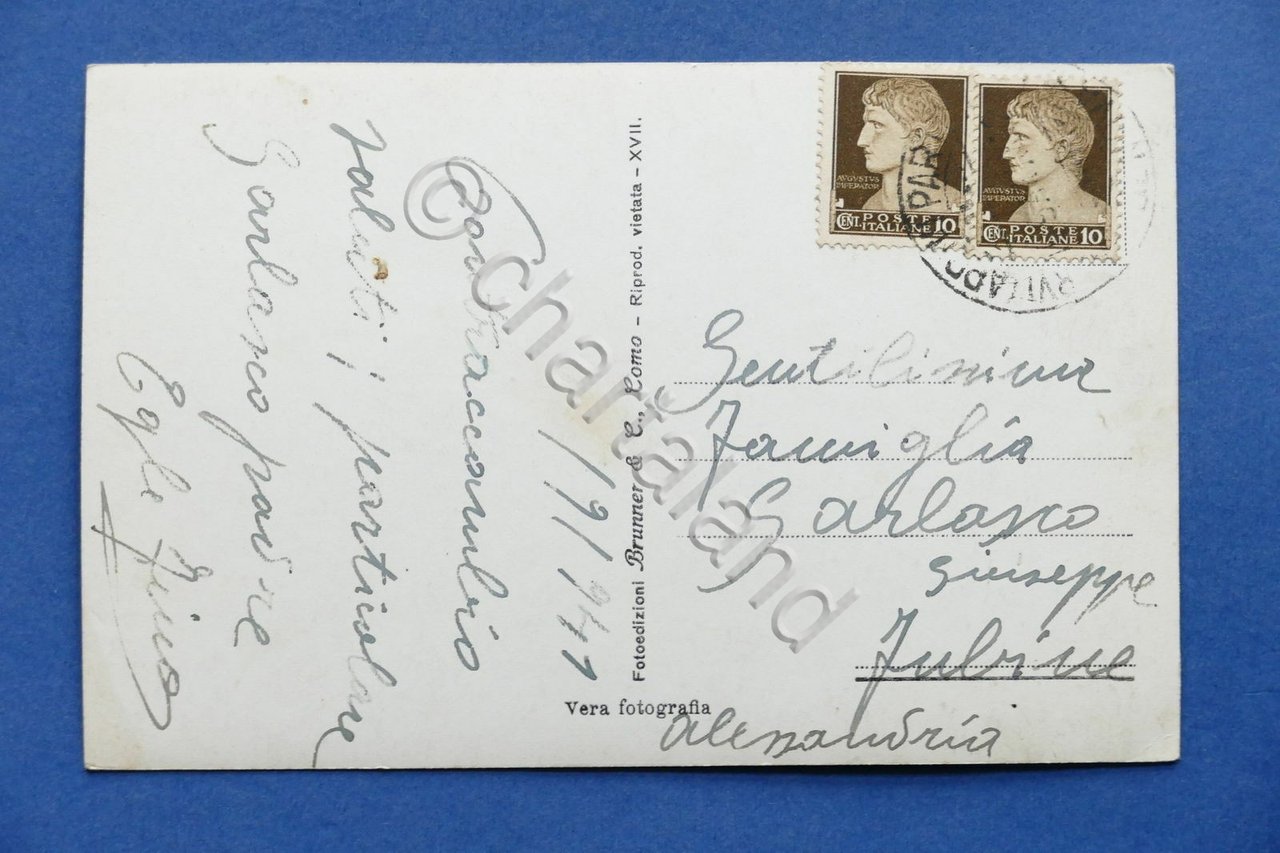 1/9/941
Contraccambio
saluti; particolare
Garlasco padre
Egle Zino
Fotoedizioni Brunner & C., Como - Riprod. vietata - XVII.
Vera fotografia
AVGVSTVS
IMPERATOR
CENT. POSTE ITALIANE 10
AVGVSTVS
IMPERATOR
CENT. POSTE ITALIANE 10
Gentilissima
Famiglia
Garlasco
Giuseppe
Fubine
Alessandria
© chartaland